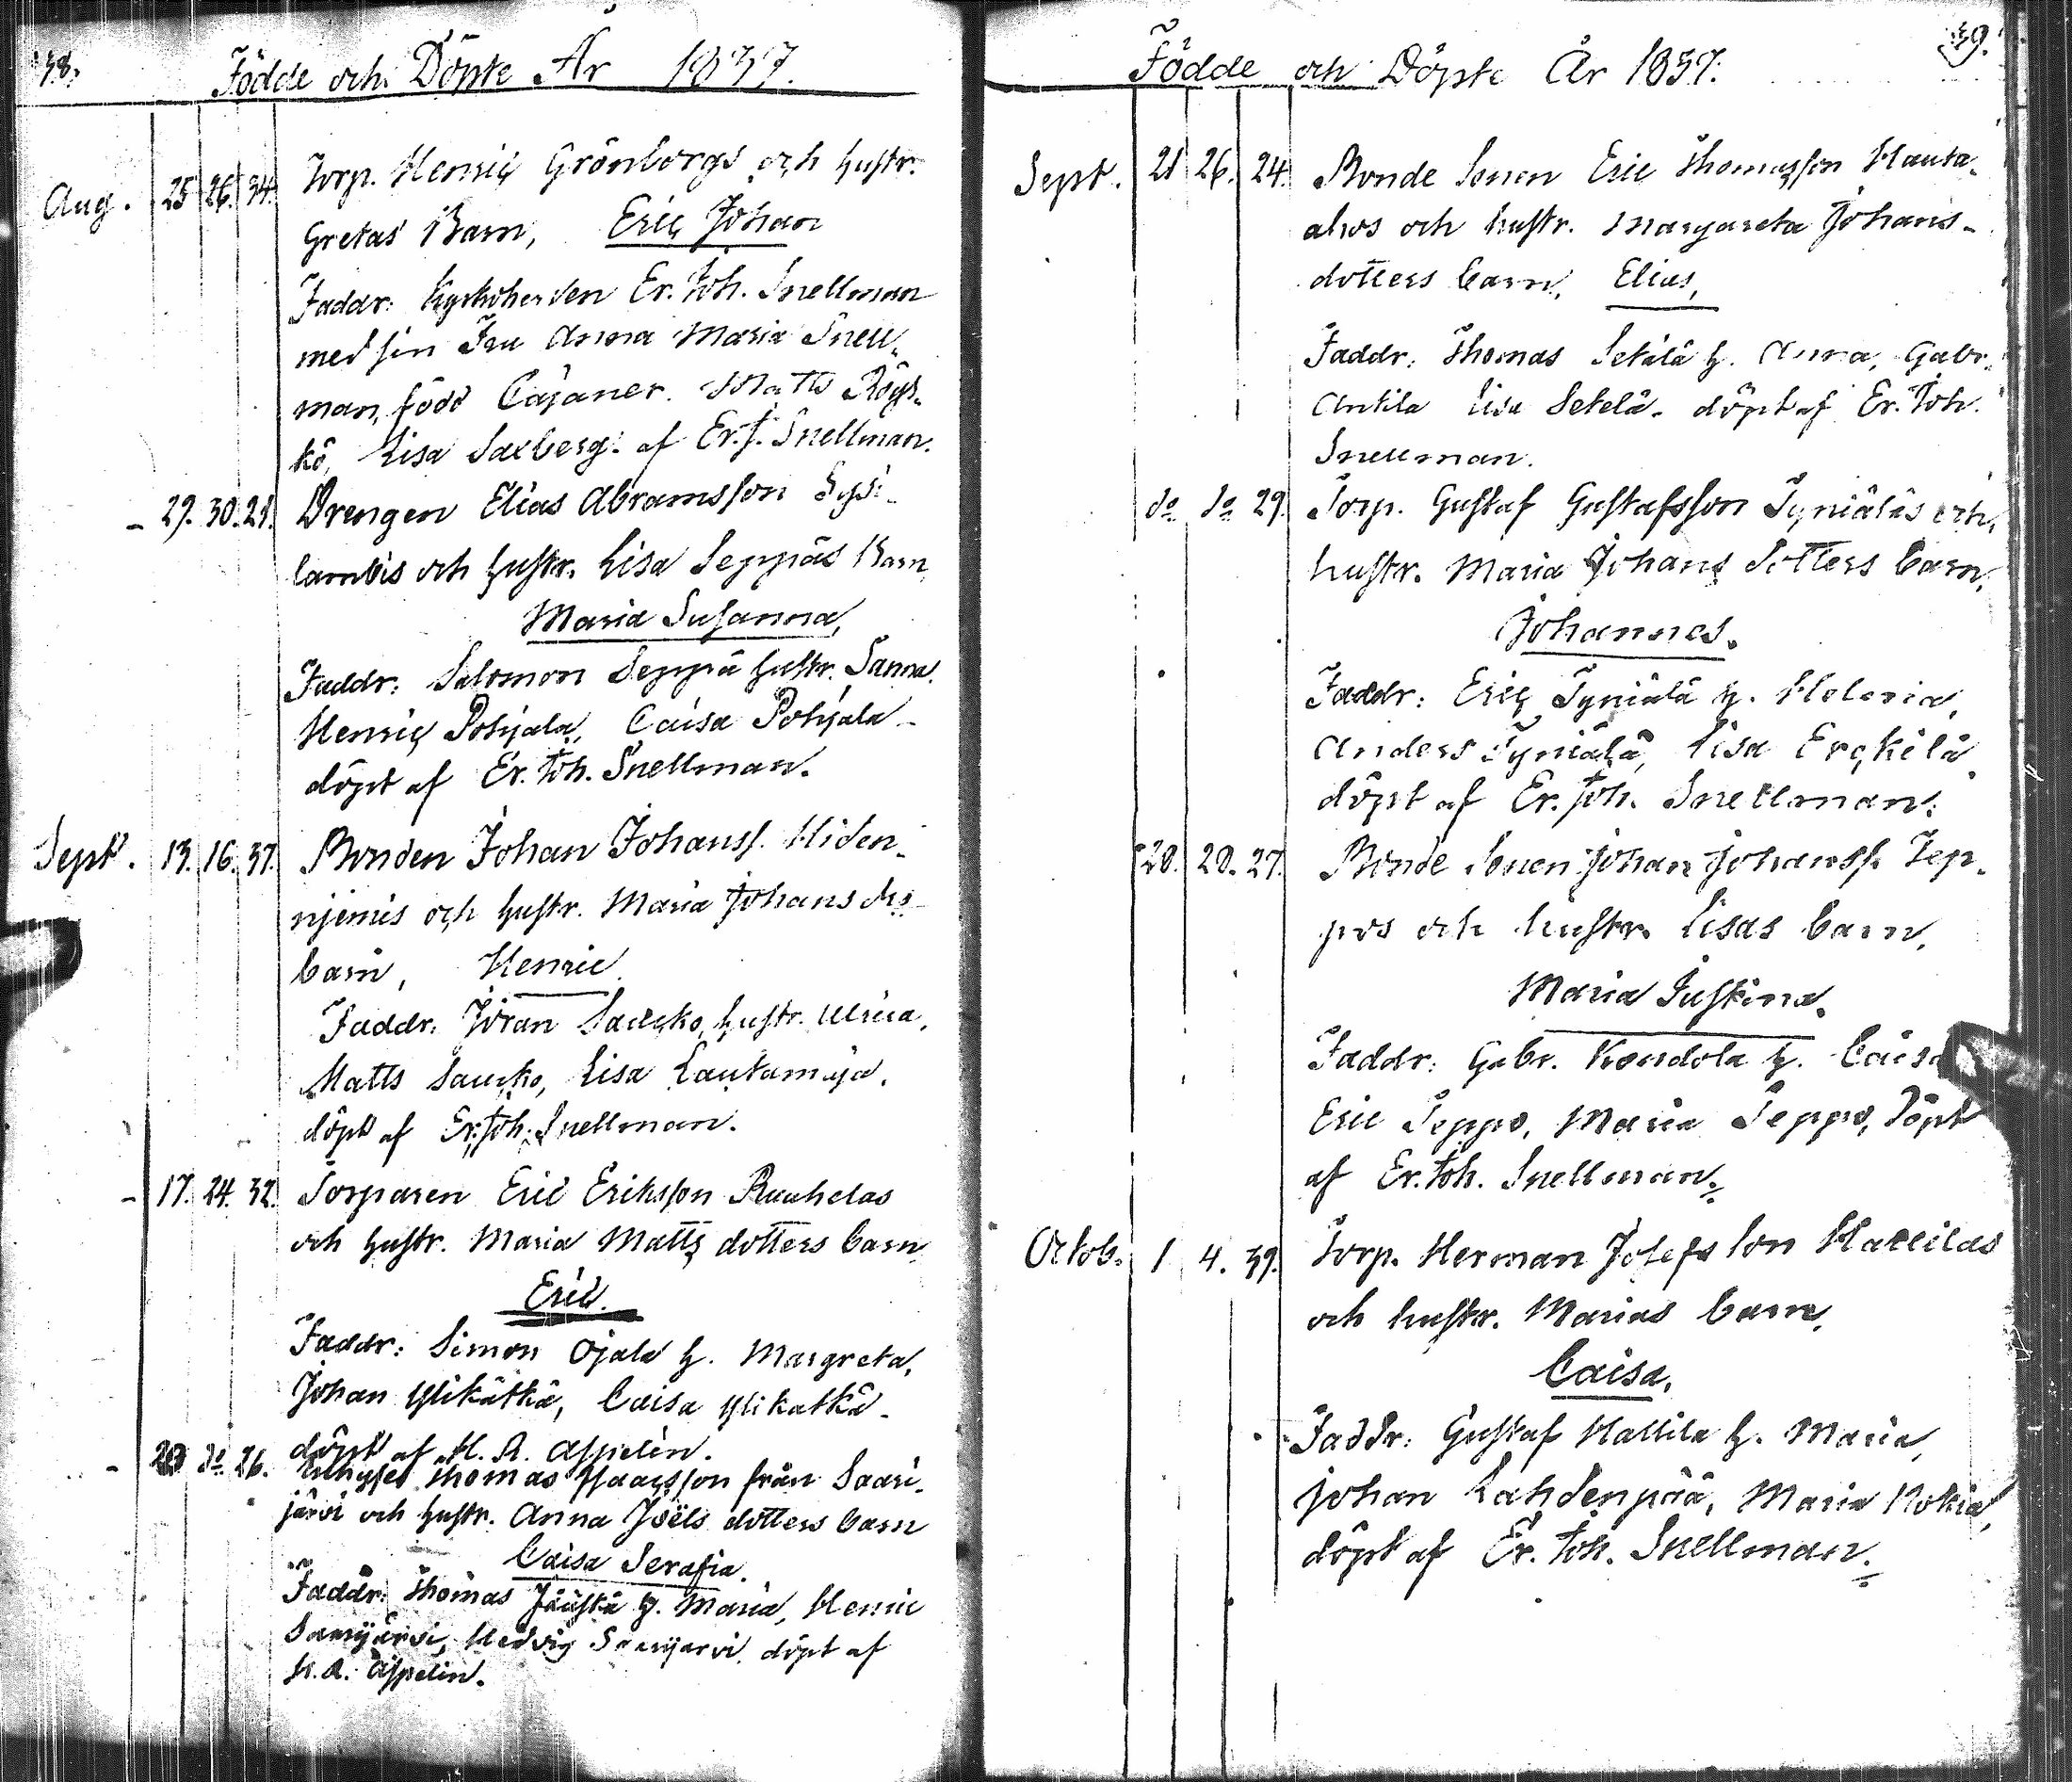 38.
Födde och Döpte År 1837.
Aug. 25 26. 34. Torp. Henric Grönborgs och hustr.
Gretas Barn, Eric Johan
Faddr: Kyrkoherden Er. Joh. Snellman
med sin Fru Anna Maria Snell-
man, född Cajaner. Matts Röys-
kö, Lisa Saxberg. af Er. J. Snellman.
- 29. 30. 21. Drengen Elias Abramsson
lambis och hustr. Lisa Seppäs Barn
Maria Susanna,
Faddr: Salomon Seppä hustr. Sanna.
Henric Pohjala, Caisa Pohjala -
döpt af Er. Joh. Snellman.
Sept. 13. 16. 37. Bonden Johan Johanss. Hiden-
njemis och hustr. Maria Johans drs
barn, Henric.
Faddr: Jöran Saucko, hustr. Ulrica,
Matts Saucko, Lisa Lautamaja.
döpt af Er. Joh. Snellman.
- 17. 24. 32. Torparen Eric Eriksson Rauhalas
och hustr. Maria Matts dotters barn
Eric.
Faddr: Simon Ojala h. Margreta,
Johan Ylikätkä, Caisa Ylikatkä -
döpt af H. R. Aspelin.
- 20 do 26. Inhyses Thomas Isaacsson från Saari-
järvi och hustr. Anna Joëls dotters barn
Caisa Serafia.
Faddr: Thomas Jääskä h. Maria, Henric
Saarijärvi, Hedvig Saarijarvi. döpt af
H. R. Aspelin.
39.
Födde och Döpte År 1837.
Sept. 21 26. 24. Bonde Sonen Eric Thomasson Hauta-
ahos och hustr. Margareta Johans-
dotters barn, Elias,
Faddr: Thomas Setälä h. Anna, Gabr.
Antila Lisa Setelä. döpt af Er. Joh.
Snellman.
do do 29. Torp. Gustaf Gustafsson Tyniäläs och
hustr. Maria Johans dotters barn,
Johannes.
Faddr: Eric Tyniälä h. Helena,
Anders Tyniälä, Lisa Erckilä
döpt af Er. Joh. Snellman.
20. 20. 27. Bonde Sonen Johan Johanss. Sep-
pos och hustr. Lisas barn,
Maria Justina.
Faddr: Gabr. Kondola h. Caisa
Eric Seppo, Maria Seppo, Döpt
af Er. Joh. Snellman.
Octob. 1 4. 39. Torp. Herman Josefsson Hallilas
och hustr. Marias barn,
Caisa,
Faddr: Gustaf Hallila h. Maria,
Johan Lahdenpää, Maria Nokia,
döpt af Er. Joh. Snellman.